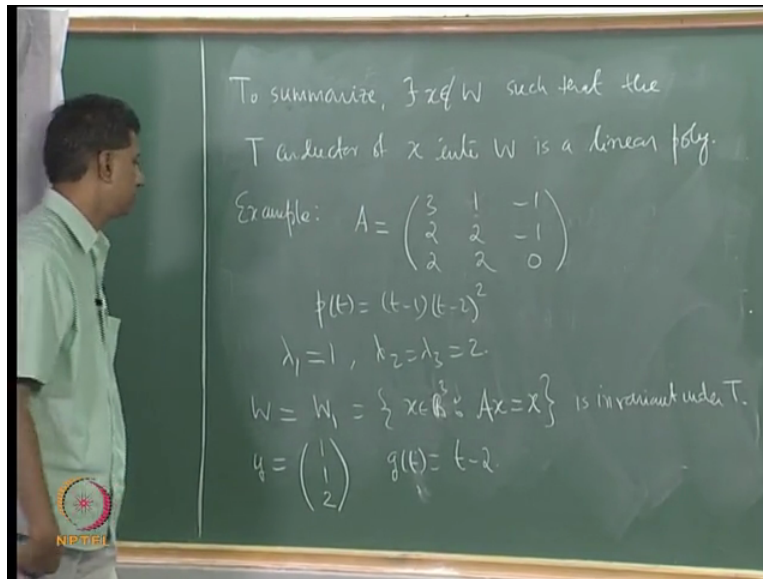 To summarize, ∃ x∉W such that the
T conductor of x into W is a linear poly.
Example: A = ( 3 1 −1
2 2 −1
2 2 0 )
p(t) = (t−1)(t−2)²
λ₁ = 1, λ₂ = λ₃ = 2.
W = W₁ = { x∈ℝ³ : Ax = x } is invariant under T.
y = ( 1
1
2 ) g(t) = t−2
NPTEL